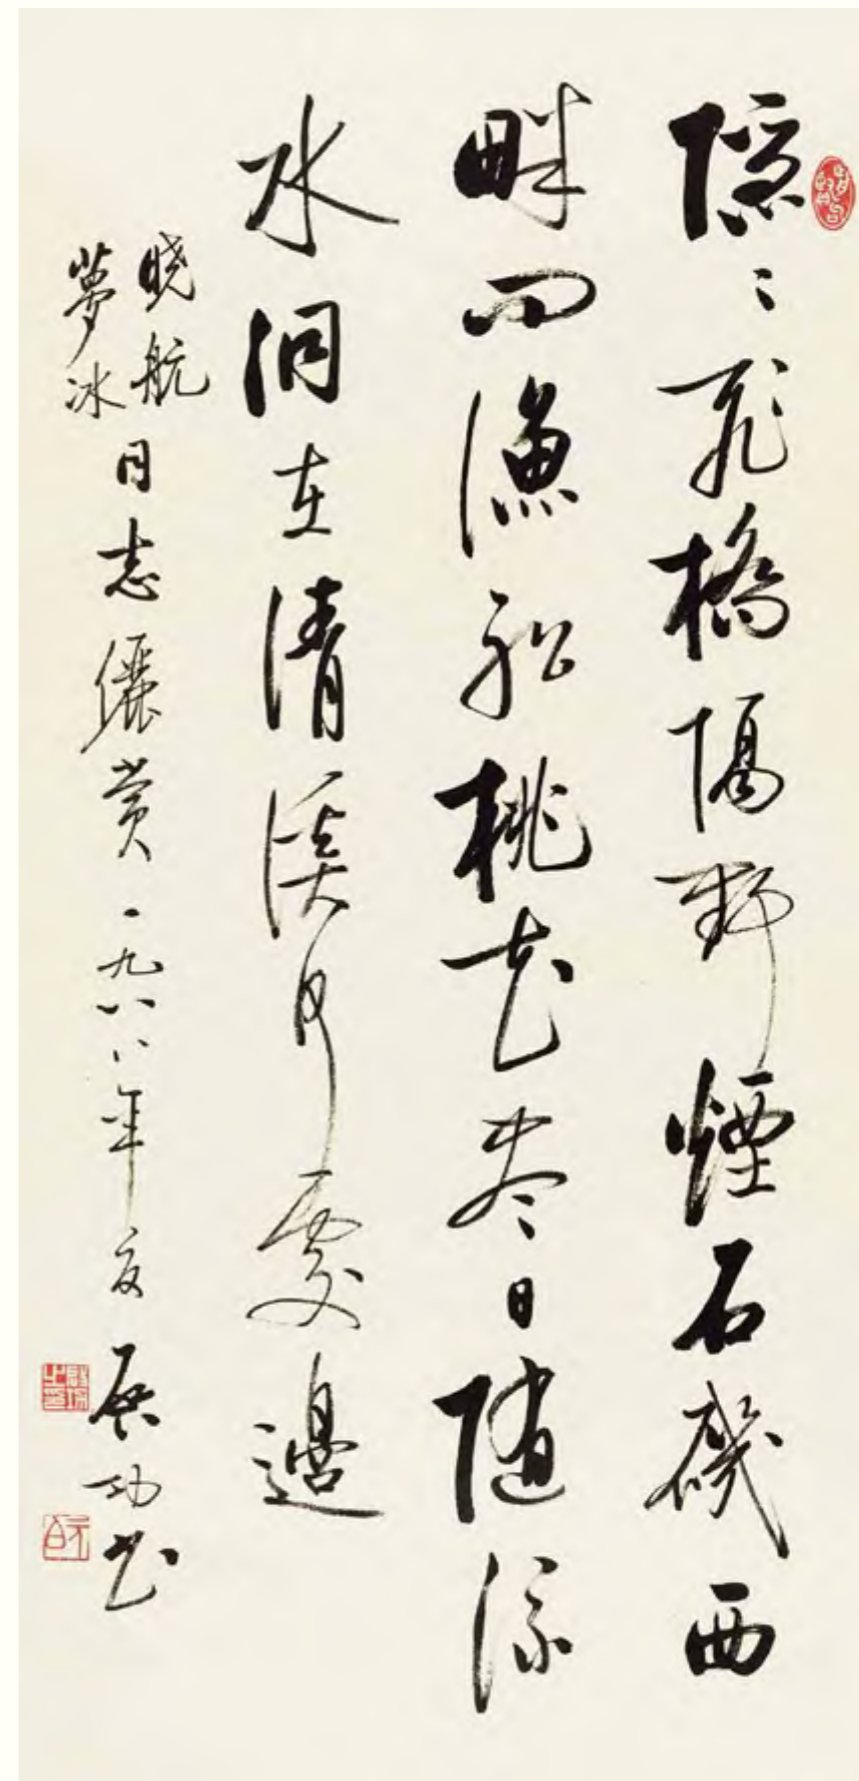 隱〻飛橋隔野煙石磯西
畔問漁船桃花盡日隨流
水洞在清溪何處邊
曉航
夢冰
同志儷賞一九八八年夏啟功書